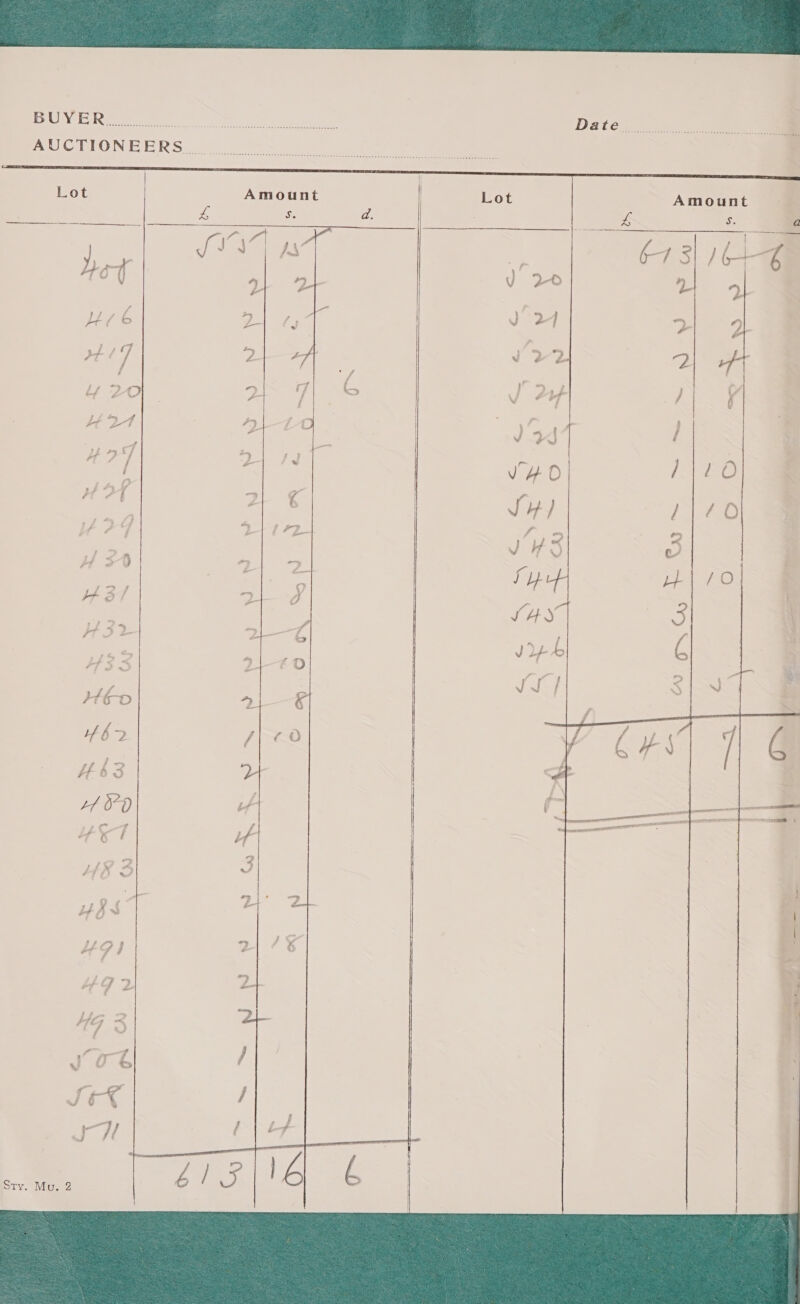 BUYER Date
AUCTIONEERS
Lot Amount
£ s. d.
555 15
2 2
416 2 15
417 2 4
420 2 7 6
421 2 10
427 2 15
428 2 8
429 2 12
430 2 2
431 2 8
432 2 6
433 2 10
460 2 8
462 1 10
463 2
480 4
481 4
483 3
485 2 2
491 2 18
492 2
493 2
506 1
508 1
511 1 4
613 16 6
Sty. Mu. 2
Lot Amount
£ s. d
613 16 6
520 2 2
521 2 2
522 2 4
524 1 8
525 1
540 1 10
541 1 10
543 3
544 4 10
545 3
546 6
551 3 5
£ 645 7 6